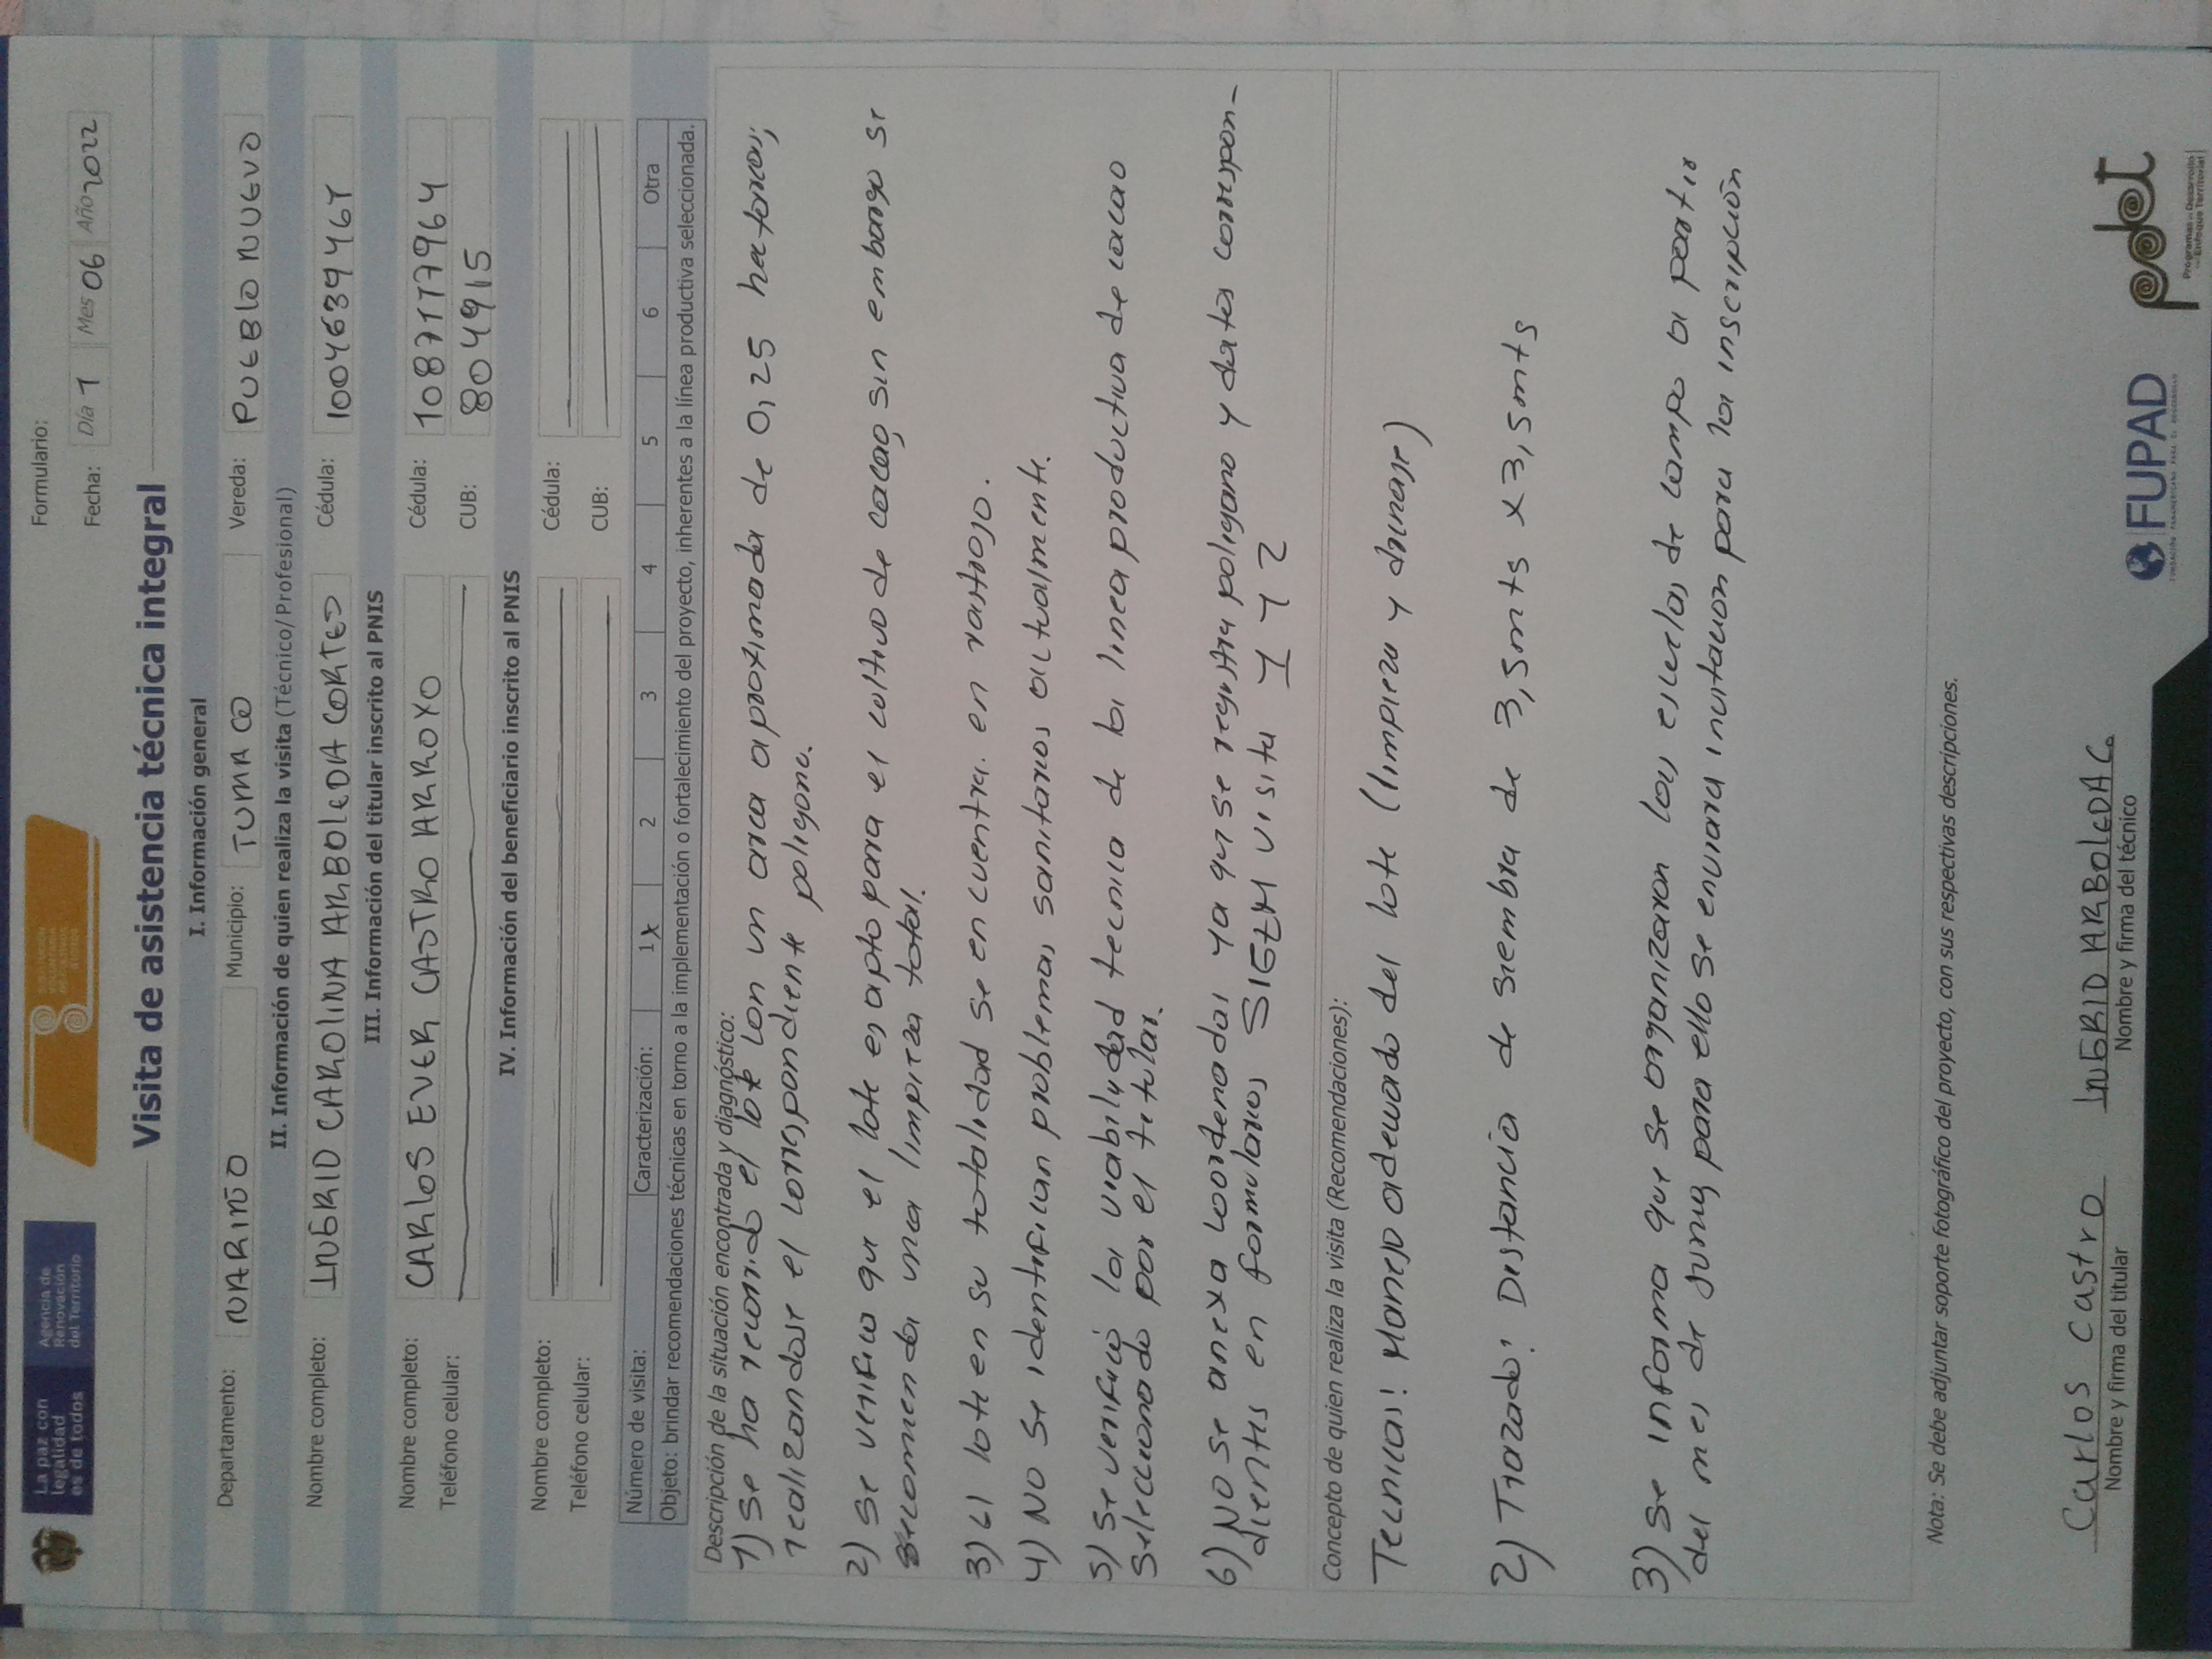 La paz con
legalidad
es de todos
Agencia de
Renovación
del Territorio
Formulario:
Fecha: Día 1 Mes 06 Año 2022
Visita de asistencia técnica integral
I. Información general
Departamento: NARIÑO Municipio: TUMACO Vereda: PUEBLO NUEVO
II. Información de quien realiza la visita (Técnico/Profesional)
Nombre completo: INGRID CAROLINA ARBOLEDA CORTES Cédula:
III. Información del titular inscrito al PNIS
Nombre completo: CARLOS EVER CASTRO ARROYO Cédula:
Teléfono celular: CUB: 804915
IV. Información del beneficiario inscrito al PNIS
Nombre completo: Cédula:
Teléfono celular: CUB:
Número de visita: Caracterización: 1 X 2 3 4 5 6 Otra
Objeto: brindar recomendaciones técnicas en torno a la implementación o fortalecimiento del proyecto, inherentes a la línea productiva seleccionada.
Descripción de la situación encontrada y diagnóstico:
1) Se ha recorrido el lote con un area aproximada de 0,25 hectareas,
realizandose el correspondiente poligono.
2) Se verifico que el lote es apto para el cultivo de cacao, sin embargo se
recomienda una limpieza total.
3) El lote en su totalidad se encuentra en rastrojo.
4) No se identifican problemas sanitarios actualmente.
5) Se verificó la viabilidad tecnica de la linea productiva de cacao
seleccionado por el titular.
6) No se anexa coordenadas ya que se registra poligono y datos correspon-
dientes en formularios SIGEM visita 1 y 2
Concepto de quien realiza la visita (Recomendaciones):
Tecnicas: Manejo adecuado del lote (limpieza y drenaje)
2) Trazado: Distancia de siembra de 3,5mts x 3,5mts
3) Se informa que se organizaran las escuelas de campo a partir
del mes de para ello se enviara invitacion para la inscripción
Nota: Se debe adjuntar soporte fotográfico del proyecto, con sus respectivas descripciones.
Carlos Castro INGRID ARBOLEDA C.
Nombre y firma del titular Nombre y firma del técnico
FUPAD
pdet
Programas de Desarrollo
con Enfoque Territorial